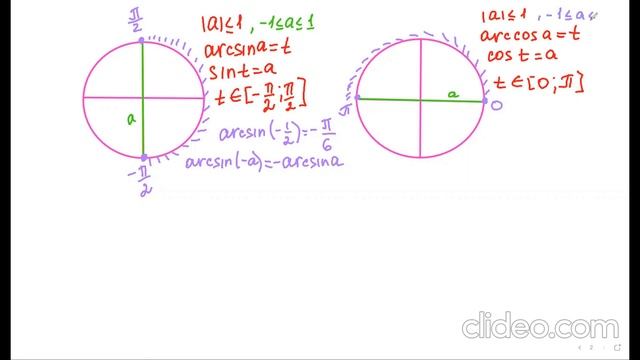 π/2
|a|≤1, -1≤a≤1
arcsina=t
sint=a
t∈[-π/2;π/2]
a
arcsin(-1/2)=-π/6
arcsin(-a)=-arcsina
-π/2
|a|≤1, -1≤a≤
arccosa=t
cost=a
t∈[0;π]
a
π
0
clideo.com
2